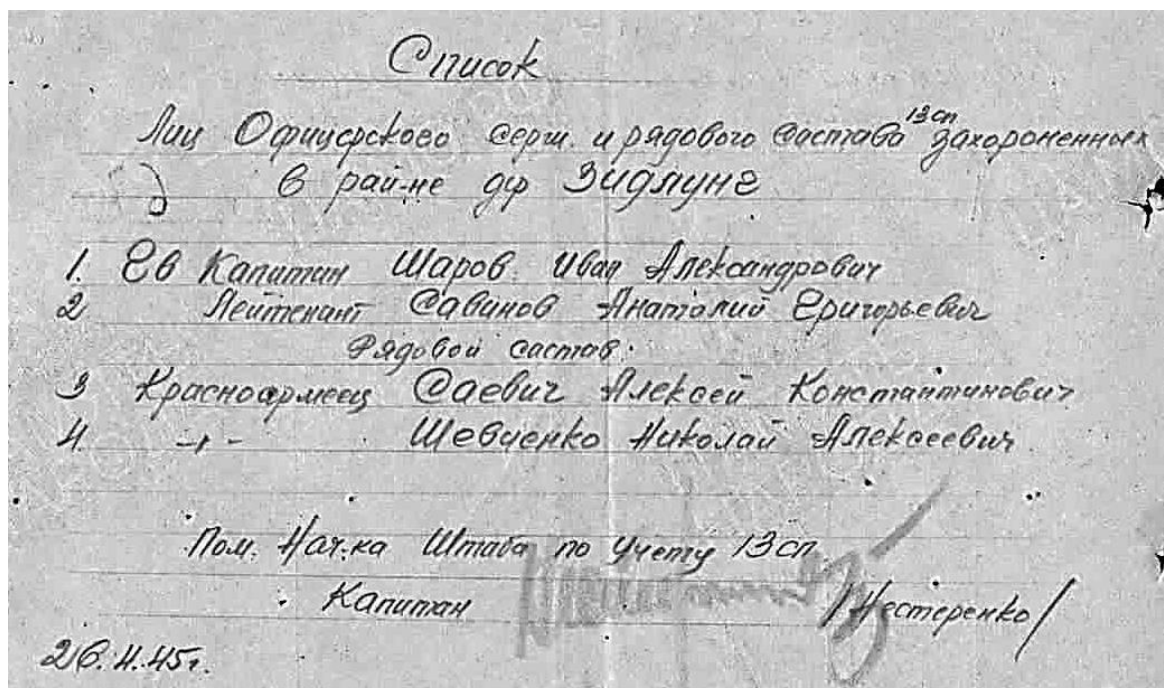 Список
Лиц Офицерсково серж. и рядового састава 13сп захороненных
в рай-не дф Зидлунг
1. Гв Капитан Шаров Иван Александрович
2 Лейтенант Савинов Анатолий Григорьевич
Рядовой састав:
3 Красноармеец Саевич Алексей Константинович
4. -"- Шевченко Николай Алексеевич
Пом. Нач-ка Штаба по Учету 13сп
Капитан /Нестеренко/
26.4.45г.